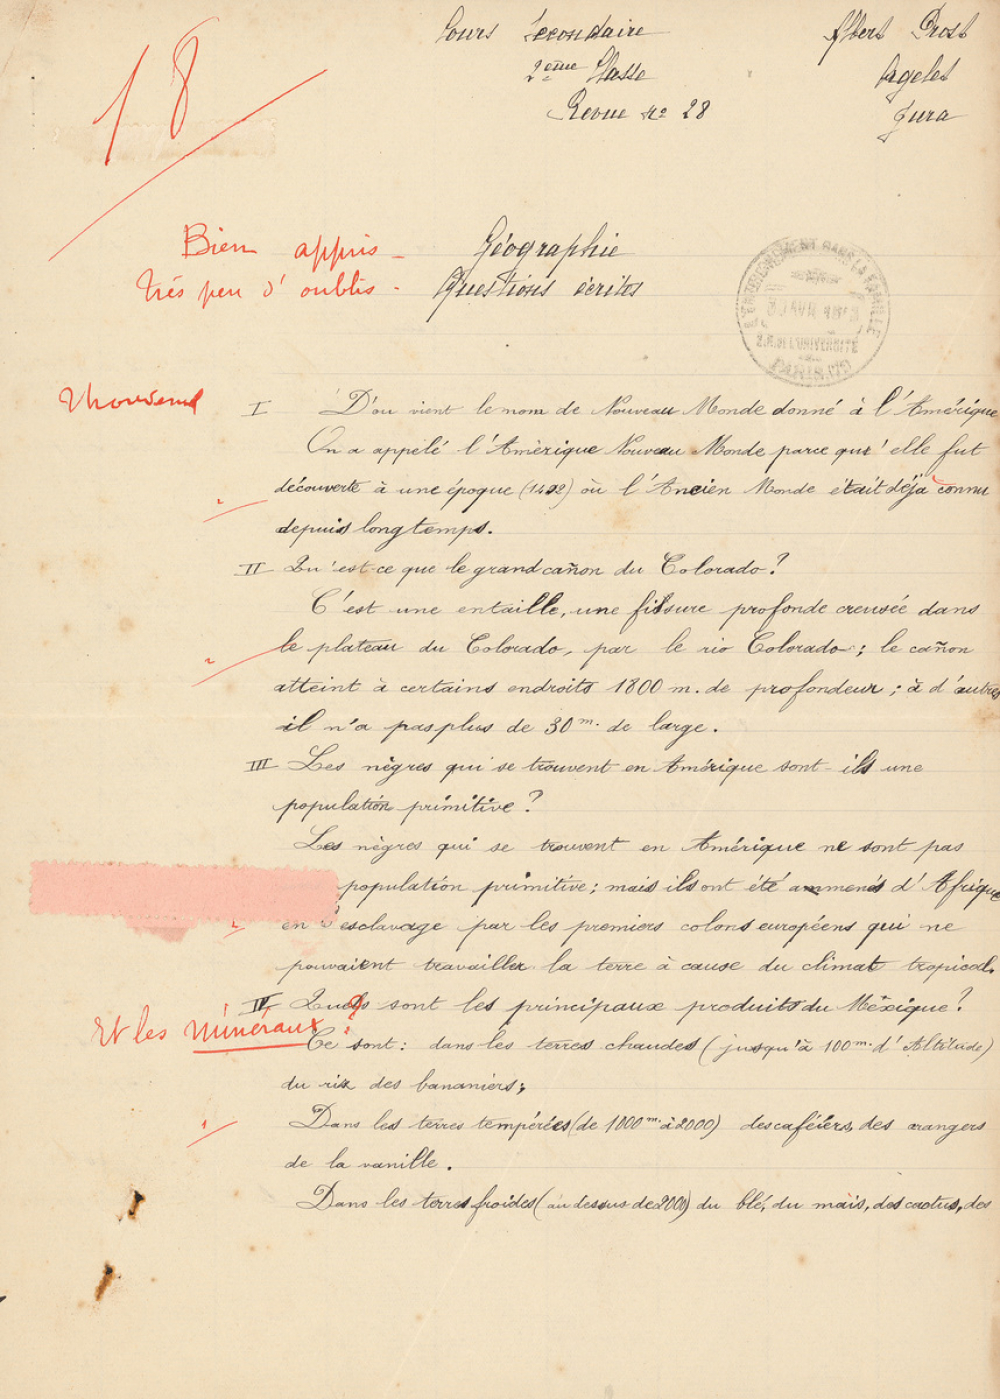 18
Cours Secondaire
2ème Classe
Revue No 28
Albert Prost
Ageles
Jura
Bien appris -
Très peu d'oublis -
Géographie
Questions écrites
L'ENSEIGNEMENT DANS LA FAMILLE
30 AVR
DE L'UNIVERSITÉ
PARIS
I D'ou vient le nom de Nouveau Monde donné à l'Amérique
On a appélé l'Amèrique Nouveau Monde parce qu'elle fut
découverte à une époque (1492) où l'Ancien Monde était déja connu
depuis longtemps.
2
II Qu'est-ce que le grand cañon du Colorado ?
C'est une entaille, une fissure profonde creusée dans
le plateau du Colorado, par le rio Colorado ; le cañon
2
atteint à certains endroits 1800 m. de profondeur ; à d'autres
il n'a pas plus de 30 m. de large.
III Les nègres qui se trouvent en Amérique sont-ils une
population primitive ?
Les nègres qui se trouvent en Amérique ne sont pas
population primitive ; mais ils ont été ammenés d'Afrique
en esclavage par les premiers colons européens qui ne
2
pouvaient travailler la terre à cause du climat tropical.
IV Quels sont les principaux produits du Méxique ?
Et les minéraux ?
Ce sont : dans les terres chaudes (jusqu'à 100 m. d'Altitude)
du riz des bananiers ;
Dans les terres tempérées (de 1000 m. à 2000) des caféiers, des orangers
1
de la vanille.
Dans les terres froides (au dessus de 2000) du blé, du mais, des cactus, des